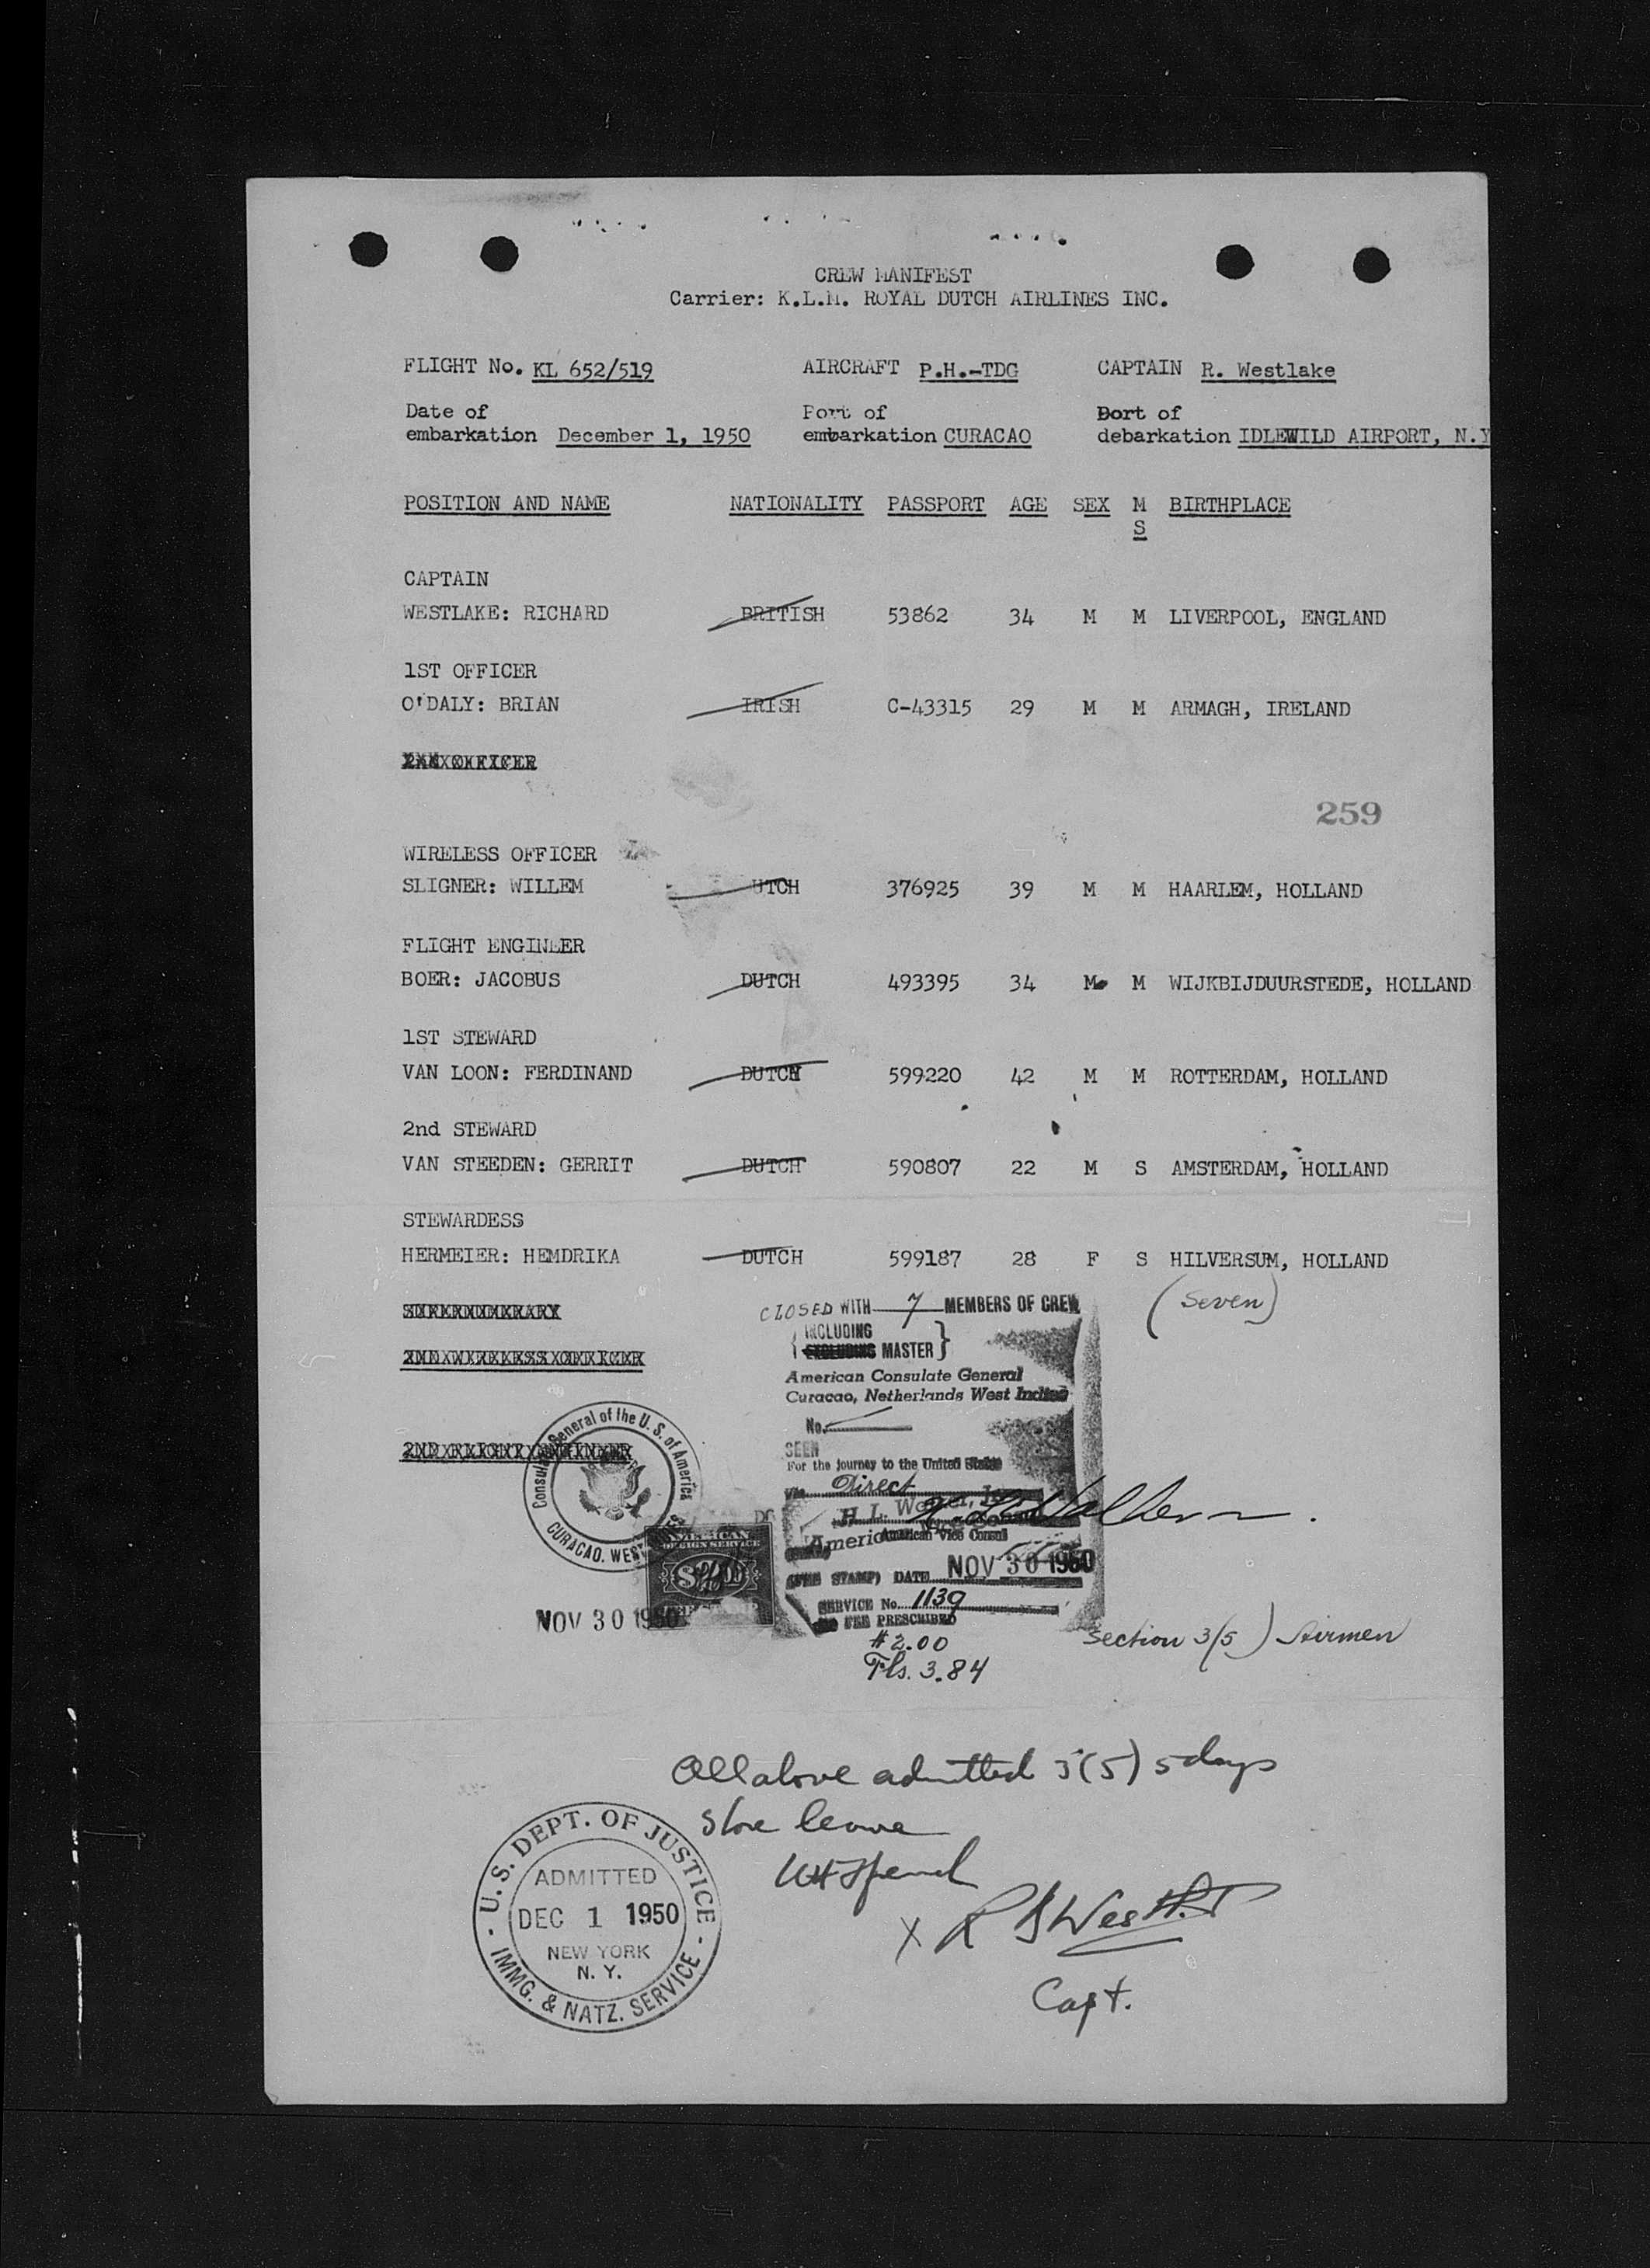 CREW MANIFEST
Carrier: K.L.M. ROYAL DUTCH AIRLINES INC.
FLIGHT No. KL 652/519 AIRCRAFT P.H.-TDG CAPTAIN R. Westlake
Date of Port of Dort of
embarkation December 1, 1950 embarkation CURACAO debarkation IDLEWILD AIRPORT, N.Y
POSITION AND NAME NATIONALITY PASSPORT AGE SEX M BIRTHPLACE
S
CAPTAIN
WESTLAKE: RICHARD BRITISH 53862 34 M M LIVERPOOL, ENGLAND
1ST OFFICER
O'DALY: BRIAN IRISH C-43315 29 M M ARMAGH, IRELAND
259
WIRELESS OFFICER
SLIGNER: WILLEM UTCH 376925 39 M M HAARLEM, HOLLAND
FLIGHT ENGINEER
BOER: JACOBUS DUTCH 493395 34 M M WIJKBIJDUURSTEDE, HOLLAND
1ST STEWARD
VAN LOON: FERDINAND DUTCH 599220 42 M M ROTTERDAM, HOLLAND
2nd STEWARD
VAN STEEDEN: GERRIT DUTCH 590807 22 M S AMSTERDAM, HOLLAND
STEWARDESS
HERMEIER: HEMDRIKA DUTCH 599187 28 F S HILVERSUM, HOLLAND
CLOSED WITH 7 MEMBERS OF CREW (Seven)
INCLUDING
EXCLUDING MASTER
American Consulate General
Curacao, Netherlands West Indies
No.
SEEN
For the journey to the United States
Via Direct
H. L.
American Vice Consul
(FEE STAMP) DATE NOV 30 1950
SERVICE No. 1139
NO FEE PRESCRIBED
$2.00
Fls. 3.84
Consulate General of the U. S. of America
CURACAO, WEST
AMERICAN
FOREIGN SERVICE
NOV 30 1950
Section 3(5) Airmen
All above admitted 3(5) 5 days
shore leave
U.S. DEPT. OF JUSTICE
ADMITTED
DEC 1 1950
NEW YORK
N. Y.
IMMG. & NATZ. SERVICE
X
Capt.